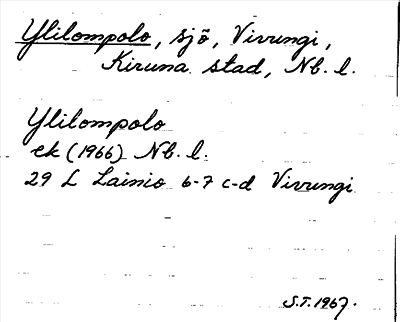 Ylilompolo, sjö, Vivungi,
Kiruna stad, Nb. l.
Ylilompolo
ek (1966) Nb. l.
29 L Lainio 6-7 c-d Vivungi
S.T. 1967.